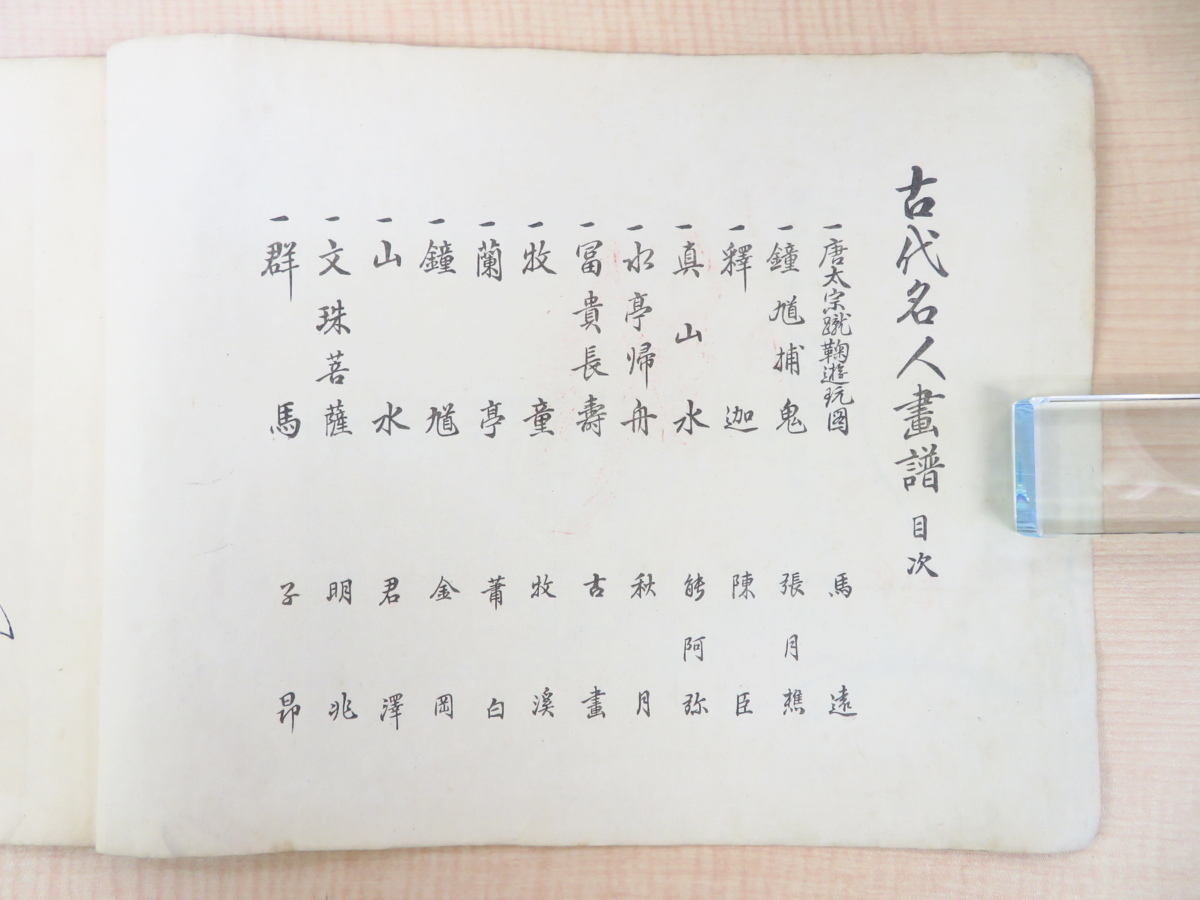 古代名人畫譜 目次
一唐太宗蹴鞠遊玩図 馬遠
一鐘馗捕鬼 張月樵
一釋迦 陳臣
一真山水 能阿弥
一水亭帰舟 秋月
一冨貴長壽 古畫
一牧童 牧溪
一蘭亭 蕭白
一鐘馗 金岡
一山水 君澤
一文珠菩薩 明兆
一群馬 子昂